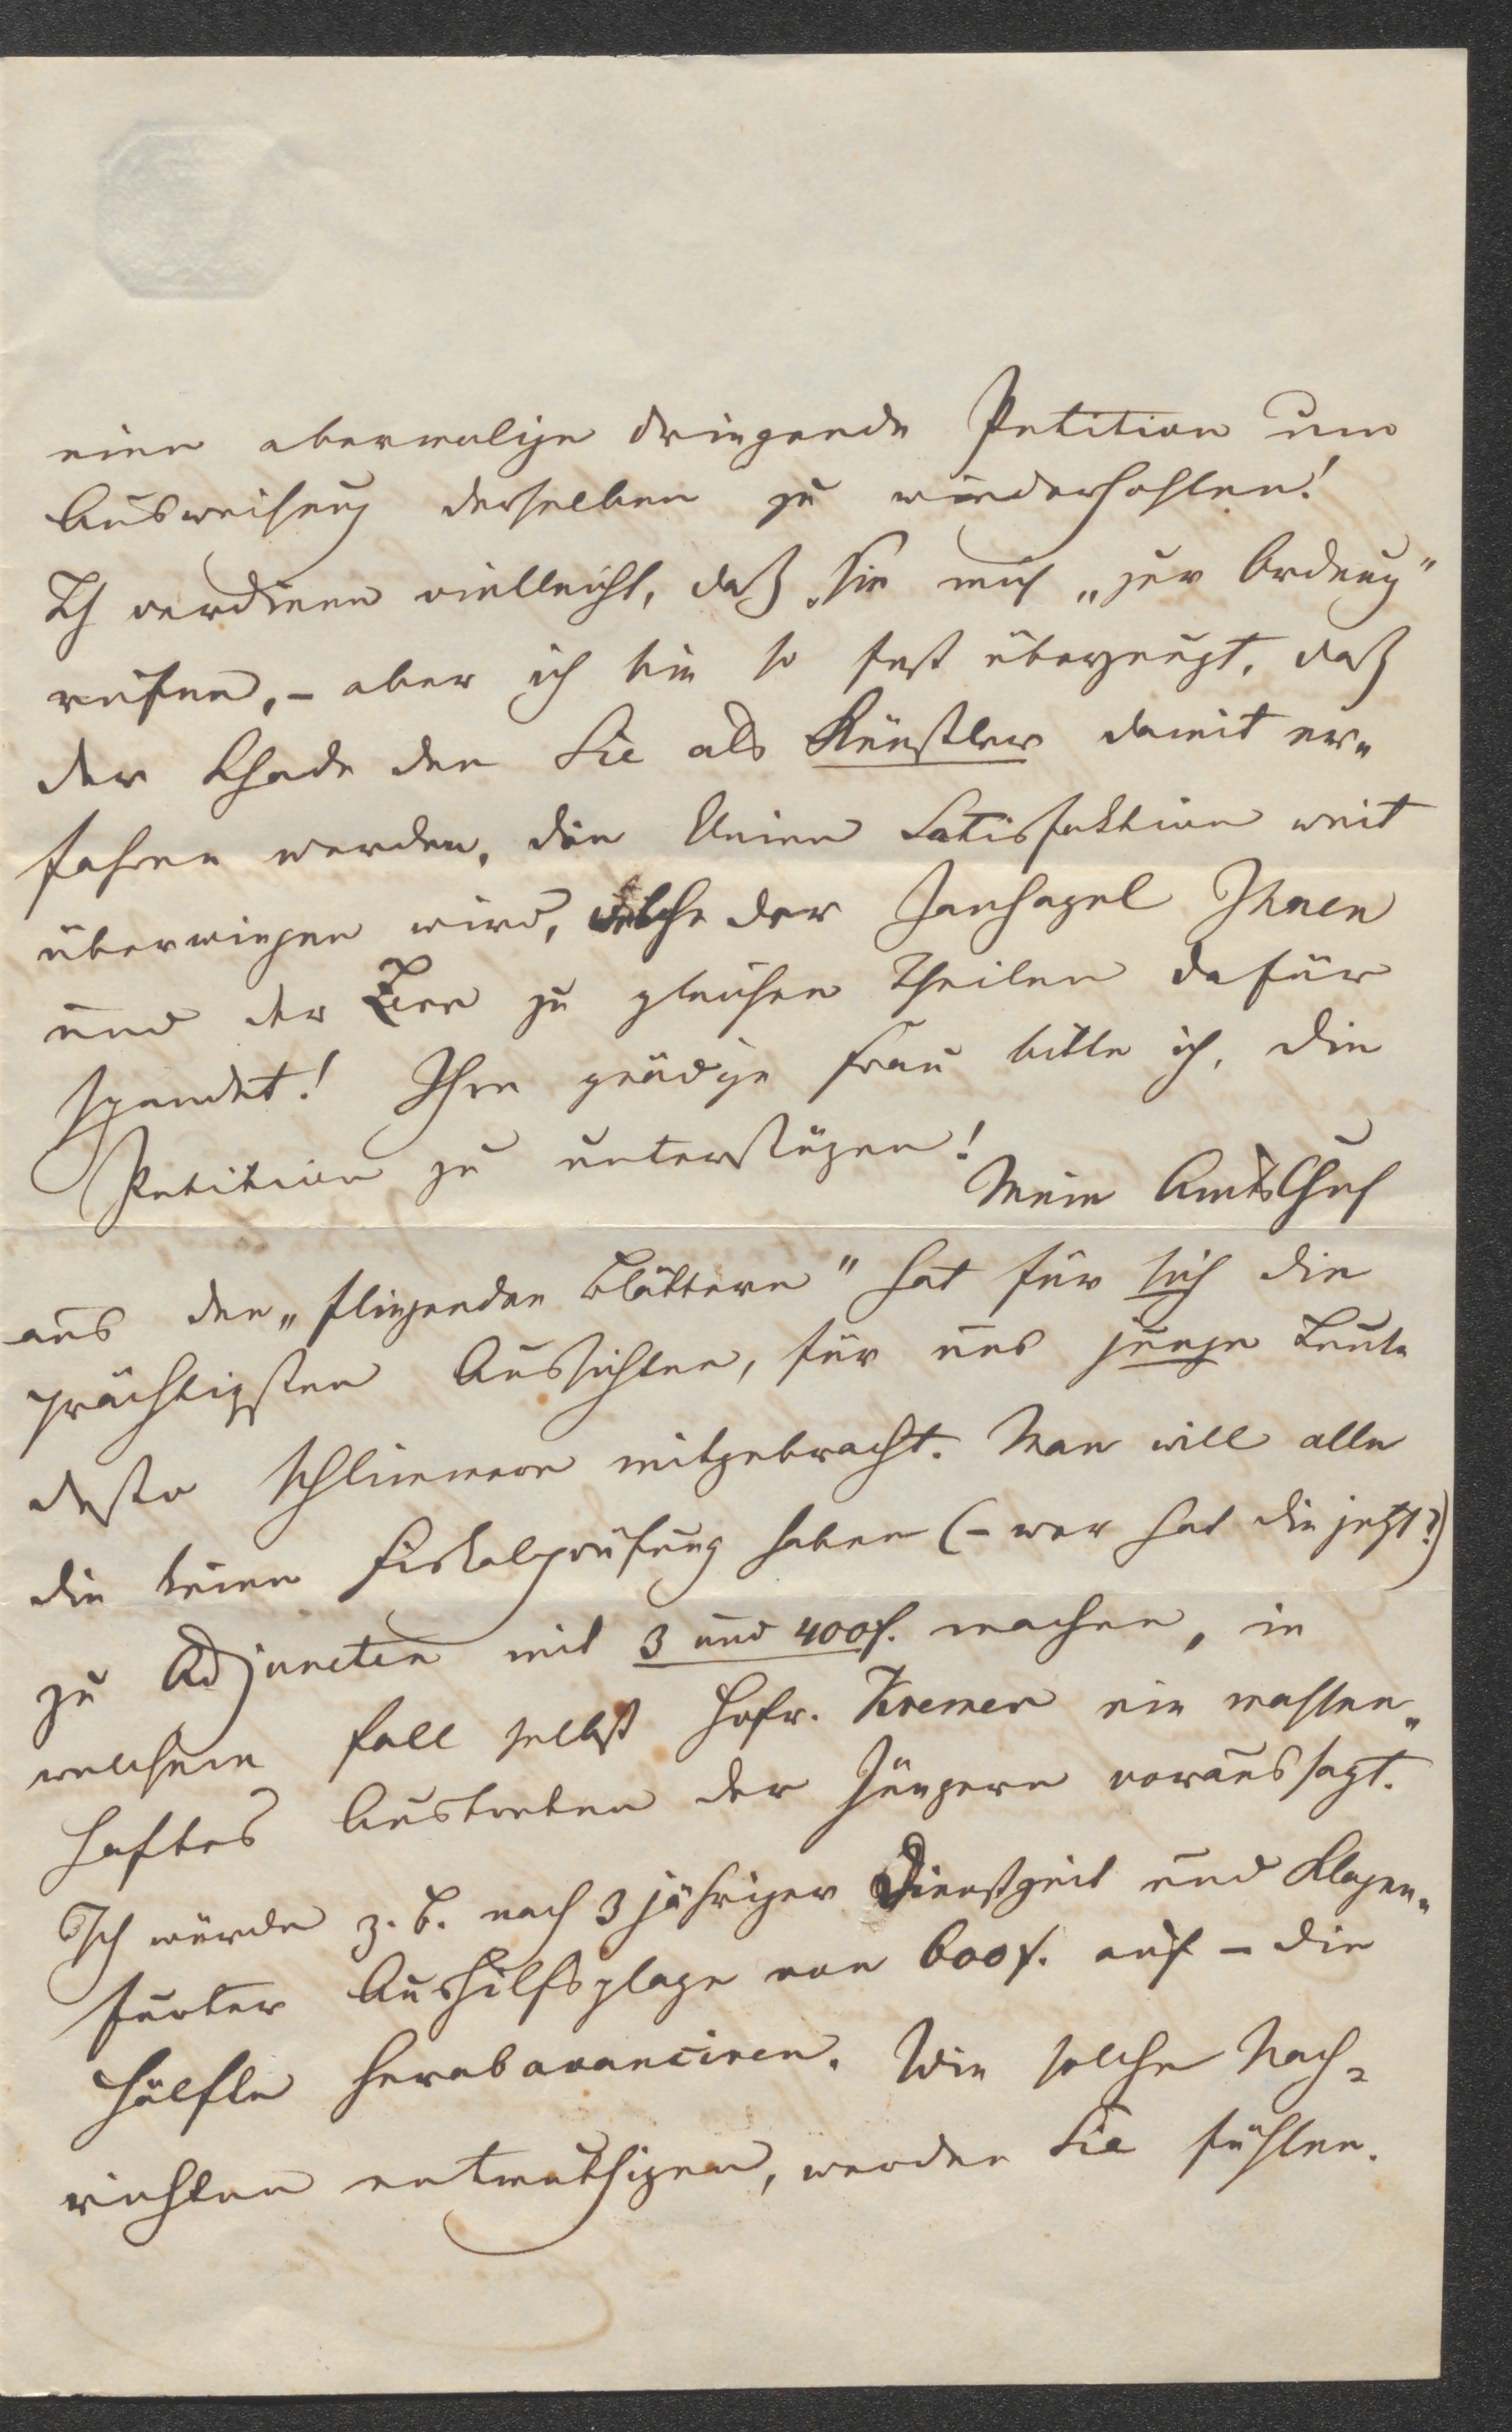 eine abermalige dringende Petition um
Ausweisung derselben zu wiederhohlen!
Ich verdiene vielleicht, daß Sie mich „zur Ordnung"
rufen, – aber ich bin so fest überzeugt, daß
der Schade den Sie als Künstler damit er„
fahren werden, die kleine Satisfaktion weit
überwiegen wird, welche der Janhagel Ihnen
und der zu gleichen Theilen dafür
spendet! Ihre gnädige Frau bitte ich, die
Petition zu unterstüzen! Mein Amtschef
aus den „fliegenden Blättern" hat für sich die
prächtigsten Aussichten, für uns junge Leute
desto schlimmere mitgebracht. Man will alle
die keine Fiskalprüfung haben (– wer hat die jetzt?)
zu Adjuncten mit 3 und 400f. machen, in
welchem Fall selbst Hofr. Kremer ein massen„
haftes Austreten der Jüngern voraussagt.
Ich würde z. B. nach 3 jähriger Dienstzeit und Klagen„
furter Aushilfsplage von 600f. auf – die
Hälfte herabavanciren. Wie solche Nach=
richten entmuthigen, werden Sie fühlen.